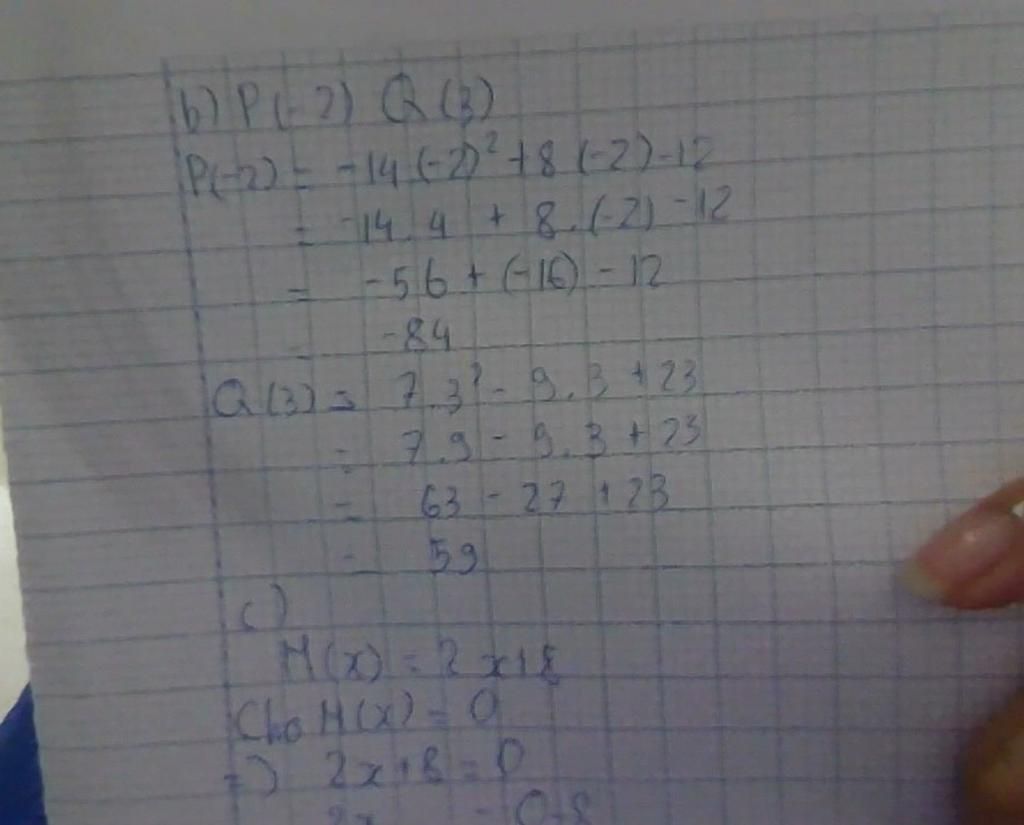 b) P(-2) Q(3)
P(-2) = -14(-2)² + 8(-2) - 12
= -14.4 + 8.(-2) - 12
= -56 + (-16) - 12
= -84
Q(3) = 7.3² - 9.3 + 23
= 7.9 - 9.3 + 23
= 63 - 27 + 23
= 59
c)
H(x) = 2x+8
Cho H(x) = 0
=) 2x+8 = 0
2x = 0-8